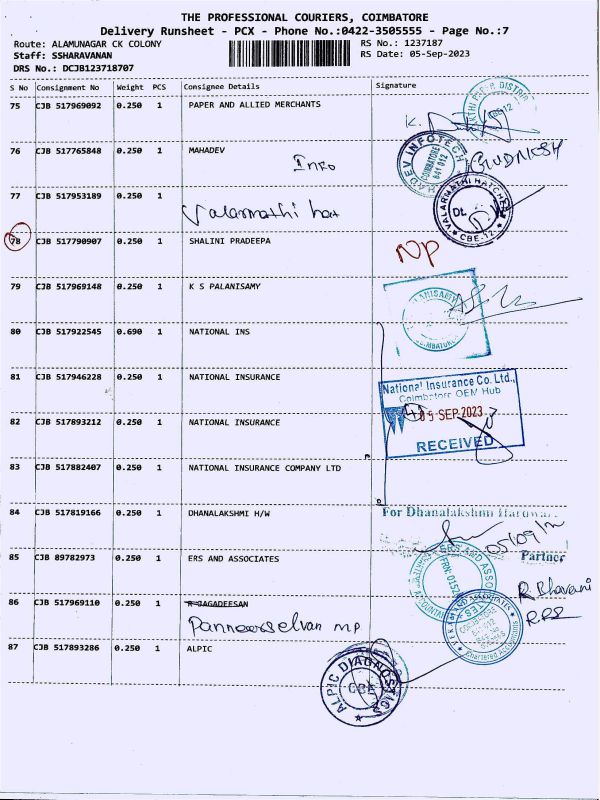 THE PROFESSIONAL COURIERS, COIMBATORE
Delivery Runsheet - PCX - Phone No.:0422-3505555 - Page No.:7
Route: ALAMUNAGAR CK COLONY
Staff: SSHARAVANAN
DRS No.: DCJB123718707
RS No.: 1237187
RS Date: 05-Sep-2023
S No Consignment No Weight PCS Consignee Details Signature
75 CJB 517969092 0.250 1 PAPER AND ALLIED MERCHANTS
K.
76 CJB 517765848 0.250 1 MAHADEV
Info
INFOTECH
COIMBATORE
641 012
77 CJB 517953189 0.250 1
Valarmathi hat
VALARMATHI HATCHERI
CBE-12
78 CJB 517790907 0.250 1 SHALINI PRADEEPA
NP
79 CJB 517969148 0.250 1 K S PALANISAMY
80 CJB 517922545 0.690 1 NATIONAL INS
81 CJB 517946228 0.250 1 NATIONAL INSURANCE
National Insurance Co. Ltd.,
Coimbatore OEM Hub
05 SEP 2023
RECEIVED
82 CJB 517893212 0.250 1 NATIONAL INSURANCE
83 CJB 517882407 0.250 1 NATIONAL INSURANCE COMPANY LTD
84 CJB 517819166 0.250 1 DHANALAKSHMI H/W
For Dhanalakshmi Hardware
05/09/
Partner
85 CJB 89782973 0.250 1 ERS AND ASSOCIATES
ERS AND ASSOC
86 CJB 517969110 0.250 1 R JAGADEESAN
Panneerselvan MP
R Bhavani
Chartered Accountants
87 CJB 517893286 0.250 1 ALPIC
ALPIC DIAGNOSTICS
CBE